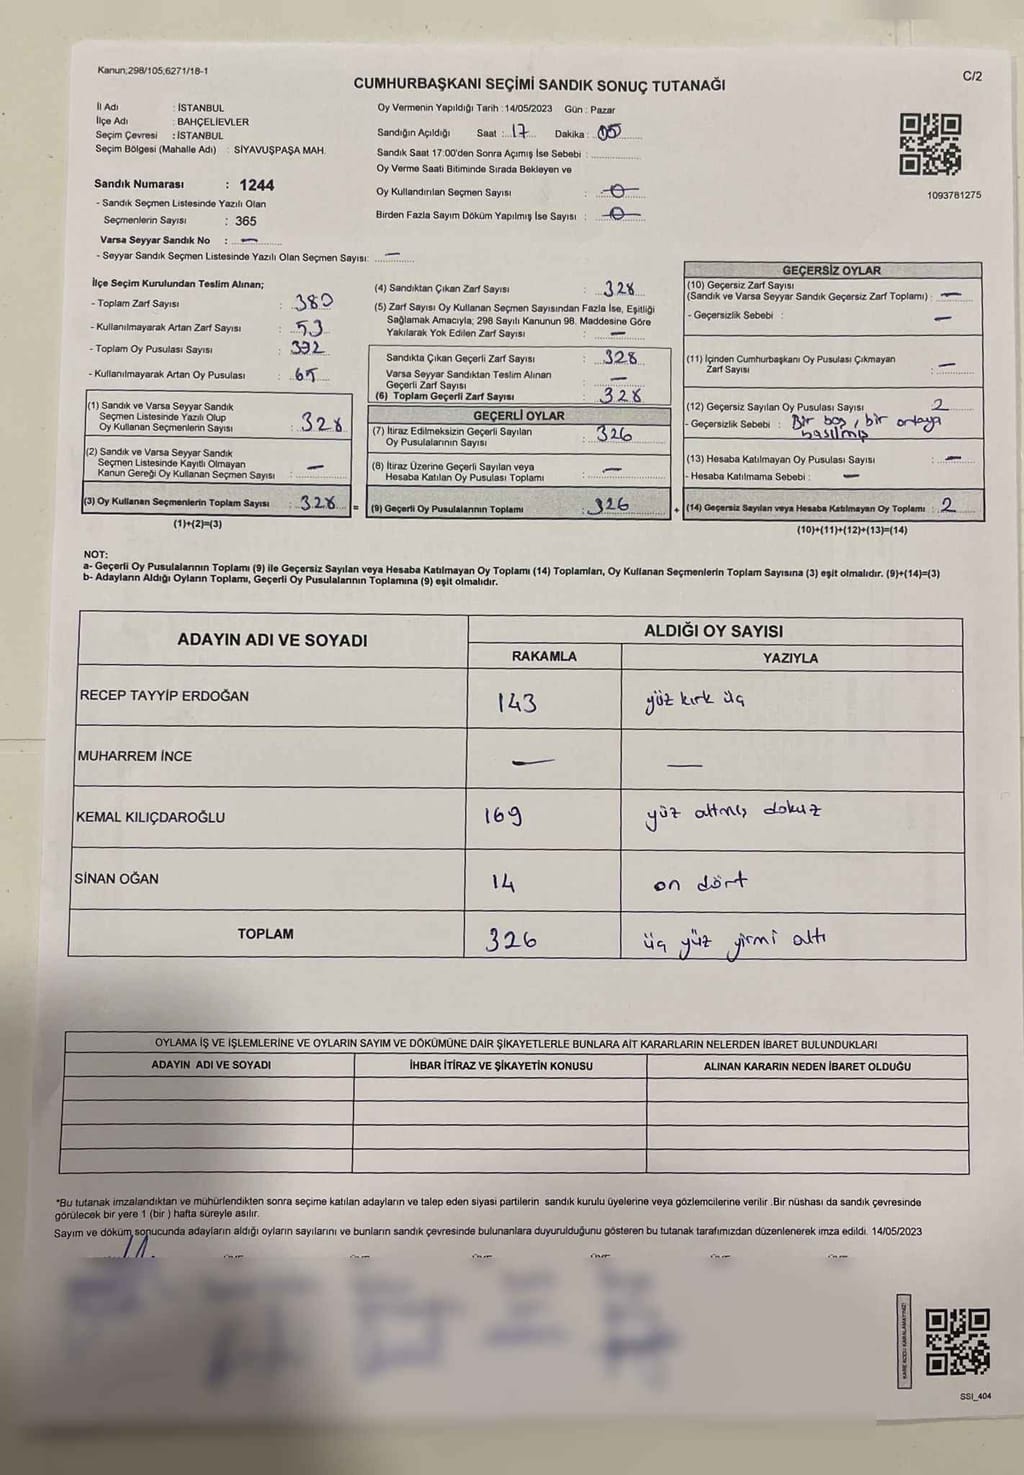 Kanun;298/105;6271/18-1
C/2
CUMHURBAŞKANI SEÇİMİ SANDIK SONUÇ TUTANAĞI
İl Adı : İSTANBUL
İlçe Adı : BAHÇELİEVLER
Seçim Çevresi : İSTANBUL
Seçim Bölgesi (Mahalle Adı) : SİYAVUŞPAŞA MAH.
Sandık Numarası : 1244
- Sandık Seçmen Listesinde Yazılı Olan
Seçmenlerin Sayısı : 365
Varsa Seyyar Sandık No : —
- Seyyar Sandık Seçmen Listesinde Yazılı Olan Seçmen Sayısı: —
Oy Vermenin Yapıldığı Tarih : 14/05/2023 Gün : Pazar
Sandığın Açıldığı Saat : 17 Dakika : 05
Sandık Saat 17:00'den Sonra Açımış İse Sebebi :
Oy Verme Saati Bitiminde Sırada Bekleyen ve
Oy Kullandırılan Seçmen Sayısı : 0
Birden Fazla Sayım Döküm Yapılmış İse Sayısı : 0
1093781275
İlçe Seçim Kurulundan Teslim Alınan;
- Toplam Zarf Sayısı : 380
- Kullanılmayarak Artan Zarf Sayısı : 53
- Toplam Oy Pusulası Sayısı : 392
- Kullanılmayarak Artan Oy Pusulası : 65
(1) Sandık ve Varsa Seyyar Sandık
Seçmen Listesinde Yazılı Olup
Oy Kullanan Seçmenlerin Sayısı : 328
(2) Sandık ve Varsa Seyyar Sandık
Seçmen Listesinde Kayıtlı Olmayan
Kanun Gereği Oy Kullanan Seçmen Sayısı : —
(3) Oy Kullanan Seçmenlerin Toplam Sayısı : 328 =
(1)+(2)=(3)
(4) Sandıktan Çıkan Zarf Sayısı : 328
(5) Zarf Sayısı Oy Kullanan Seçmen Sayısından Fazla İse, Eşitliği
Sağlamak Amacıyla; 298 Sayılı Kanunun 98. Maddesine Göre
Yakılarak Yok Edilen Zarf Sayısı : —
Sandıkta Çıkan Geçerli Zarf Sayısı : 328
Varsa Seyyar Sandıktan Teslim Alınan
Geçerli Zarf Sayısı : —
(6) Toplam Geçerli Zarf Sayısı : 328
GEÇERLİ OYLAR
(7) İtiraz Edilmeksizin Geçerli Sayılan
Oy Pusulalarının Sayısı : 326
(8) İtiraz Üzerine Geçerli Sayılan veya
Hesaba Katılan Oy Pusulası Toplamı : —
(9) Geçerli Oy Pusulalarının Toplamı : 326 +
GEÇERSİZ OYLAR
(10) Geçersiz Zarf Sayısı
(Sandık ve Varsa Seyyar Sandık Geçersiz Zarf Toplamı) : —
- Geçersizlik Sebebi : —
(11) İçinden Cumhurbaşkanı Oy Pusulası Çıkmayan
Zarf Sayısı : —
(12) Geçersiz Sayılan Oy Pusulası Sayısı : 2
- Geçersizlik Sebebi : Bir boş, bir ortaya
basılmış
(13) Hesaba Katılmayan Oy Pusulası Sayısı : —
- Hesaba Katılmama Sebebi : —
(14) Geçersiz Sayılan veya Hesaba Katılmayan Oy Toplamı : 2
(10)+(11)+(12)+(13)=(14)
NOT:
a- Geçerli Oy Pusulalarının Toplamı (9) ile Geçersiz Sayılan veya Hesaba Katılmayan Oy Toplamı (14) Toplamları, Oy Kullanan Seçmenlerin Toplam Sayısına (3) eşit olmalıdır. (9)+(14)=(3)
b- Adayların Aldığı Oyların Toplamı, Geçerli Oy Pusulalarının Toplamına (9) eşit olmalıdır.
ADAYIN ADI VE SOYADI
ALDIĞI OY SAYISI
RAKAMLA YAZIYLA
RECEP TAYYİP ERDOĞAN 143 yüz kırk üç
MUHARREM İNCE — —
KEMAL KILIÇDAROĞLU 169 yüz altmış dokuz
SİNAN OĞAN 14 on dört
TOPLAM 326 üç yüz yirmi altı
OYLAMA İŞ VE İŞLEMLERİNE VE OYLARIN SAYIM VE DÖKÜMÜNE DAİR ŞİKAYETLERLE BUNLARA AİT KARARLARIN NELERDEN İBARET BULUNDUKLARI
ADAYIN ADI VE SOYADI İHBAR İTİRAZ VE ŞİKAYETİN KONUSU ALINAN KARARIN NEDEN İBARET OLDUĞU
*Bu tutanak imzalandıktan ve mühürlendikten sonra seçime katılan adayların ve talep eden siyasi partilerin sandık kurulu üyelerine veya gözlemcilerine verilir .Bir nüshası da sandık çevresinde
görülecek bir yere 1 (bir ) hafta süreyle asılır.
Sayım ve döküm sonucunda adayların aldığı oyların sayılarını ve bunların sandık çevresinde bulunanlara duyurulduğunu gösteren bu tutanak tarafımızdan düzenlenerek imza edildi. 14/05/2023
KARE KODU KARALAMAYINIZ!
SSI_404